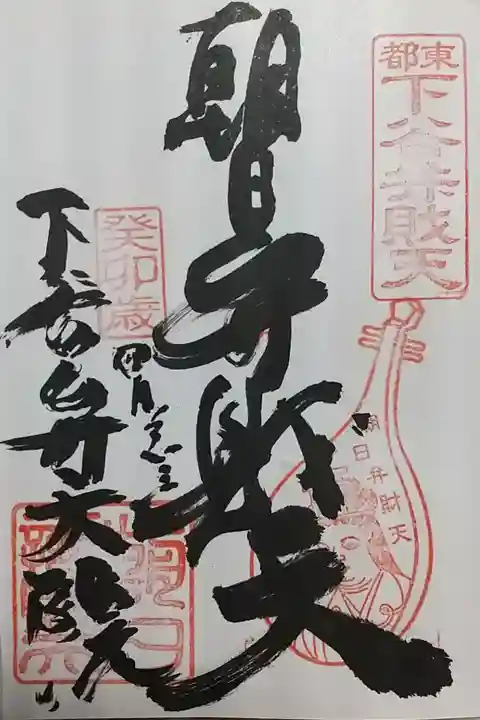 東都
下谷弁財天
朝日弁財天
朝日弁財天
癸卯歳
下谷山弁天院